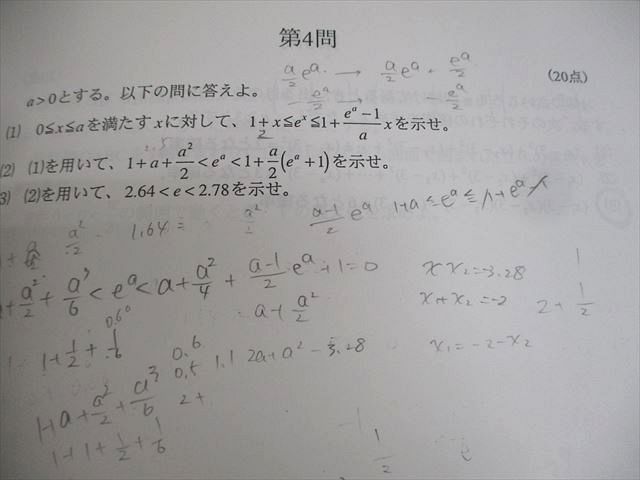 第4問
a/2 e^a → a/2 e^a + e^a/2
(20点)
a>0とする。以下の問に答えよ。
(1) 0≦x≦aを満たすxに対して、1+x≦e^x≦1+(e^a−1)/a xを示せ。
(2) (1)を用いて、1+a+a²/2<e^a<1+a/2(e^a+1)を示せ。
3) (2)を用いて、2.64<e<2.78を示せ。
a²/2 1.64 a²/2 (a-1)/2 e^a 1+a≦e^a≦1+e^a-1
+a²/2+a³/6<e^a<a+a²/4+(a-1)/2 e^a+1=0
x x₂=-3.28
=a+a²/2
x₁+x₂=-2
2+1/2
1
0.60
1+1/2+1/6
0.6
0.5
1.1 2a+a²-3.28
x₁=-2-x₂
1+a+a²/2+a³/6
2+
1+1+1/2+1/6
-1
1/2